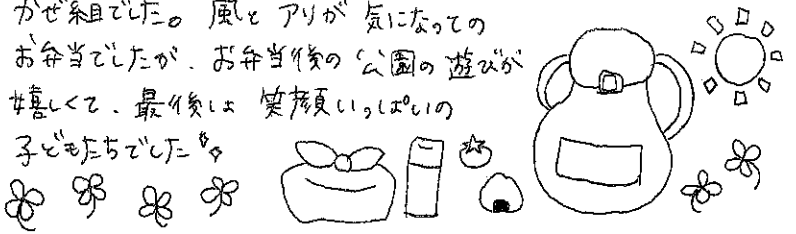 かぜ組でした。風と アリが 気になっての
お弁当でしたが、お弁当後の 公園の 遊びが
嬉しくて、最後は 笑顔いっぱいの
子どもたちでした